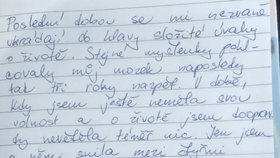 Poslední dobou se mi nezvaně
vkrádají do hlavy složité úvahy
o životě. Stejné myšlenky pohl-
covaly můj mozek naposledy
tak tři roky nazpět. V době,
kdy jsem ještě neměla svou
volnost a o životě jsem doopra-
vdy nevěděla téměř nic. Jen jsem
o něm snila mezi čtyřmi